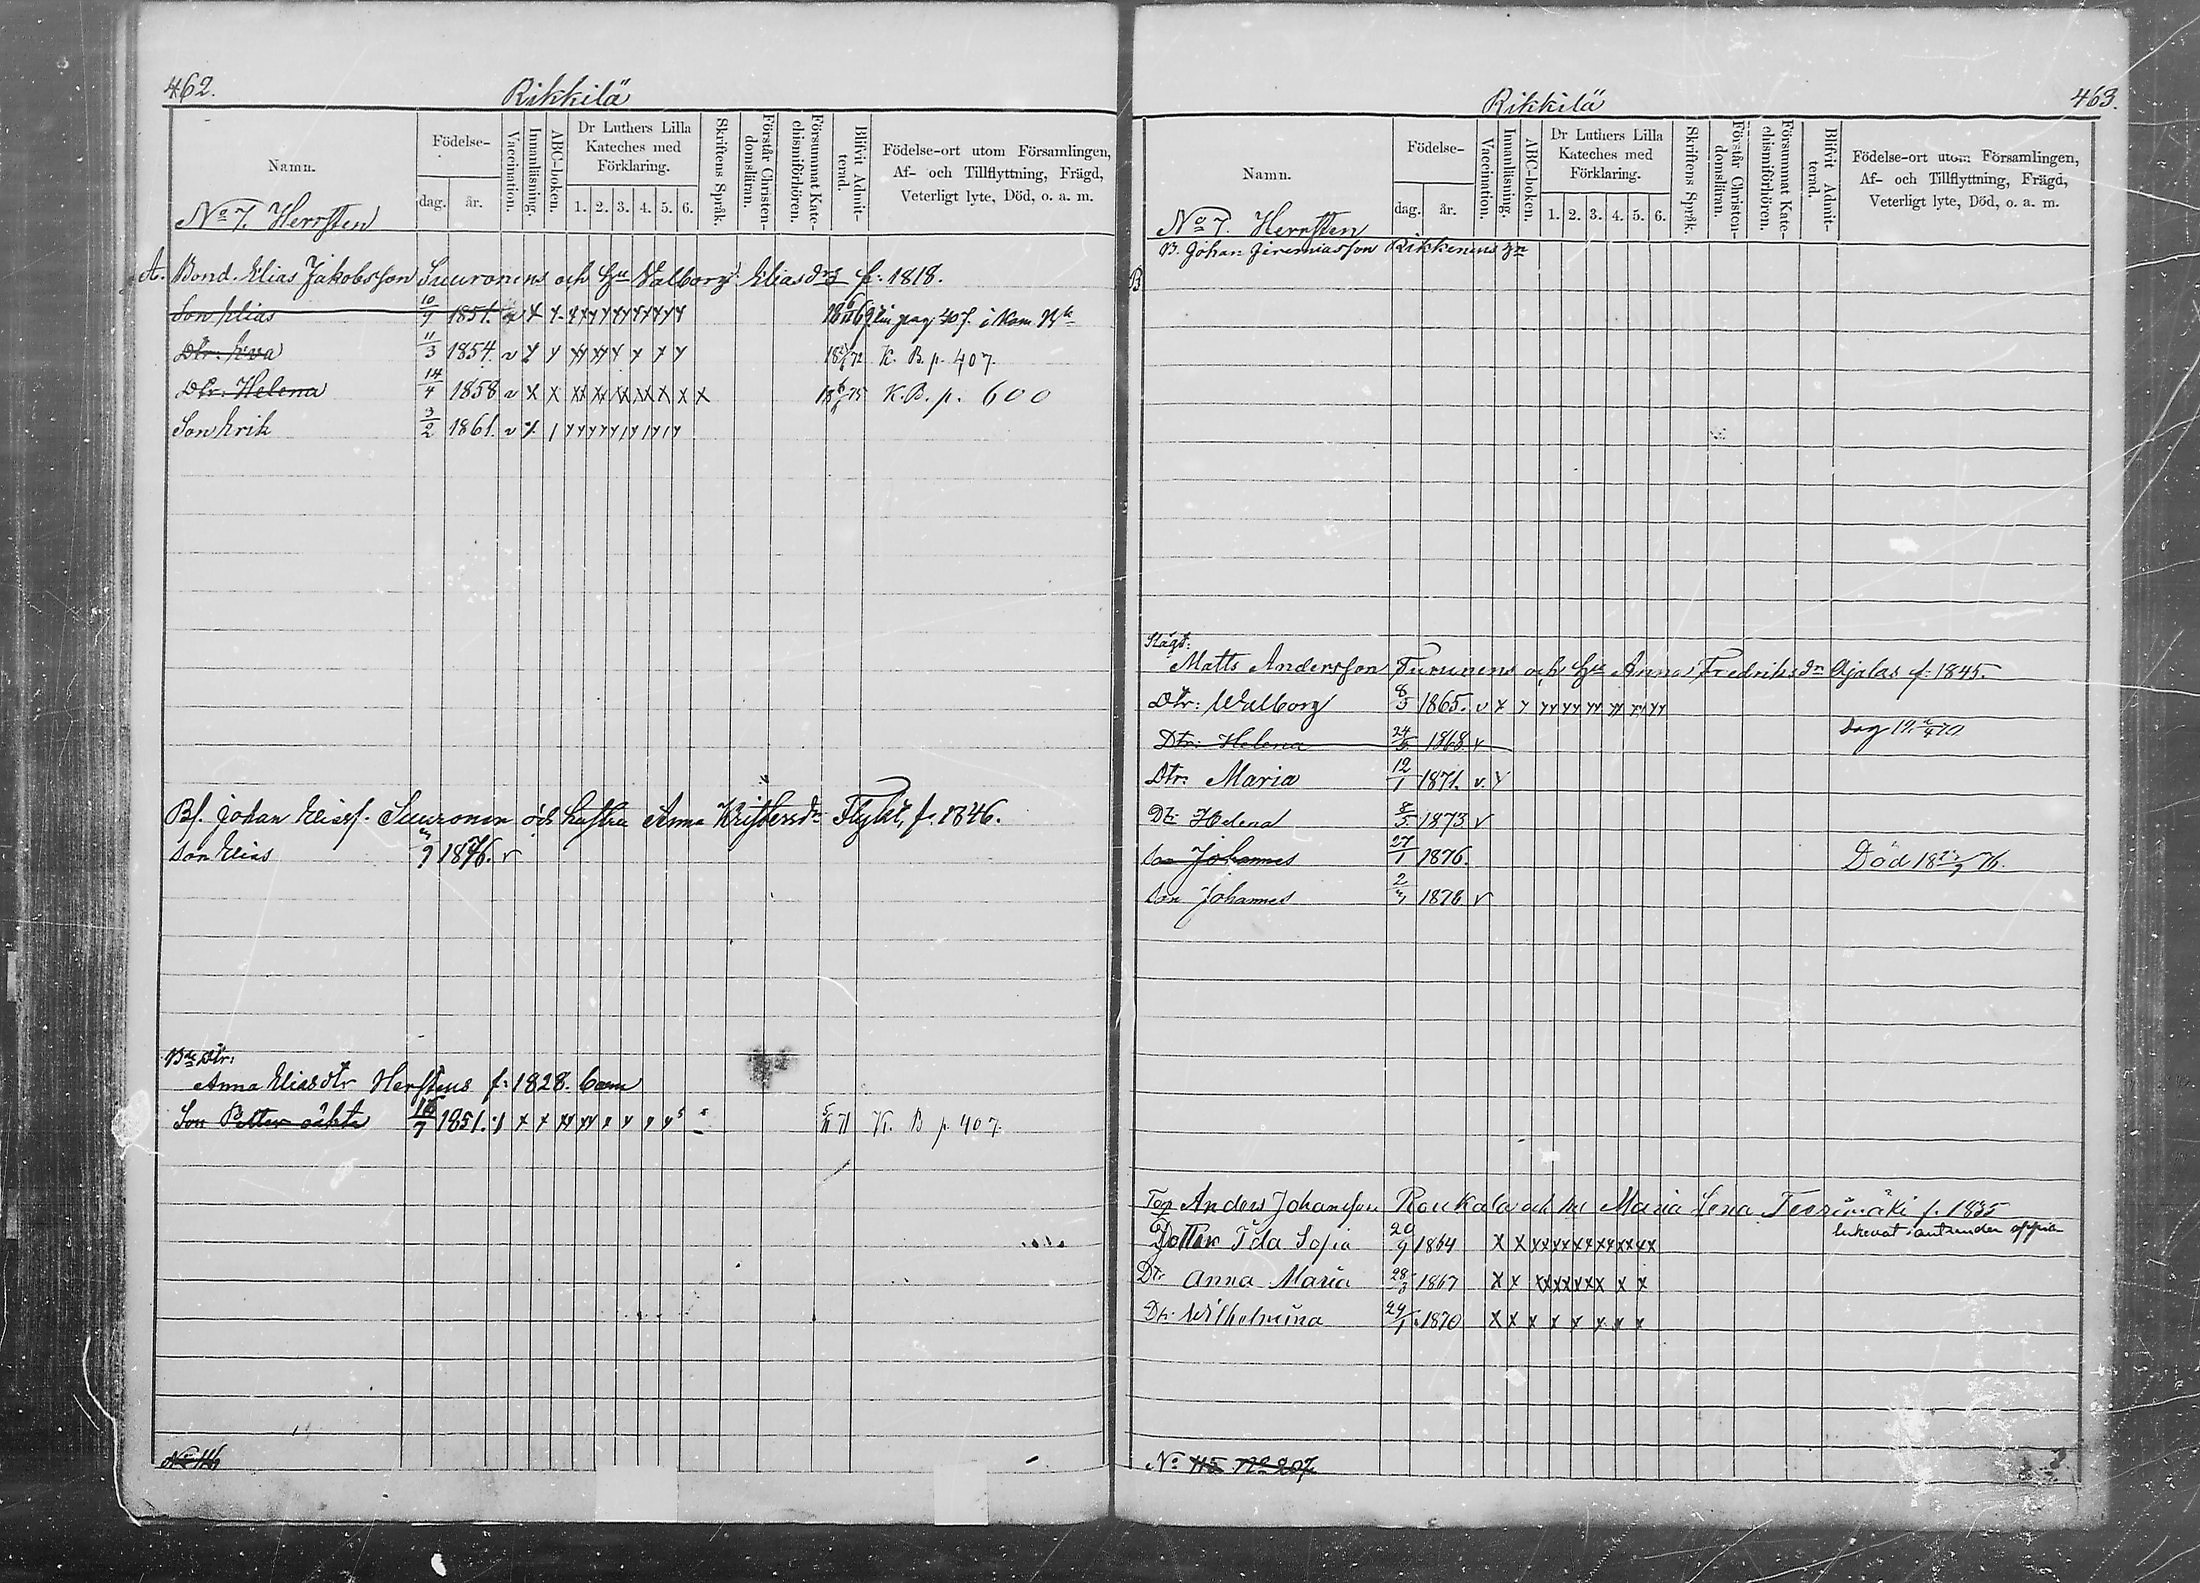 462.
Rikkilä
Namn.
Födelse-
dag.
år.
Vaccination.
Innanläsning.
ABC-boken.
Dr Luthers Lilla Kateches med Förklaring.
1. 2. 3. 4. 5. 6.
Skriftens Språk.
Förstår Christendomsläran.
Försummat Katechismiförhören.
Blifvit Admitterad.
Födelse-ort utom Församlingen,
Af- och Tillflyttning, Frägd,
Veterligt lyte, Död, o. a. m.
No 7. Herrsten
A. Bond. Elias Jakobsson Suuronens och Hu Valborg Eliasdrs f: 1818.
Son Elias 10/9 1851. v x x pag 407. i Kom. Bk
Dtr: Eva 11/3 1854. v x x K. B. p. 407.
Dtr: Helena 14/4 1858 v x x K. B. p. 600
Son Erik 3/2 1861. v x
Bs. Johan Eliass. Suuronen och hustru Anna Flykt, f. 1846.
Son Elias 1876. v
Bde Dtr:
Anna Eliasdtr Herstens f: 1828. barn
Son Petter oäkta 7 1851. x x 71 K. B p. 407.
No 116
Rikkilä
463.
Namn.
Födelse-
dag.
år.
Vaccination.
Innanläsning.
ABC-boken.
Dr Luthers Lilla Kateches med Förklaring.
1. 2. 3. 4. 5. 6.
Skriftens Språk.
Förstår Christendomsläran.
Försummat Katechismiförhören.
Blifvit Admitterad.
Födelse-ort utom Församlingen,
Af- och Tillflyttning, Frägd,
Veterligt lyte, Död, o. a. m.
No 7. Herrsten
B. Johan Jeremiasson Rikkonens
B
Slägt:
Matts Andersson Turunens och Hu Anna Fredriksdr Ajalas f: 1845.
Dtr: Walborg 8/3 1865. v x
Dtr: Helena 24/5 1868. v
Dtr. Maria 12/1 1871. v.
Dtr Helena 8/5 1873 v
Son Johannes 27/1 1876. Död 76.
Son Johannes 1878 v
Anders Johansson Roukala och hu Maria Lena f. 1835
Dotter Ida Sofia 20/9 1864 x x
Dtr Anna Maria 28/3 1867 x x
Dtr Wilhelmina 29/1 1870 x x x x x x x x
No 115 No 207